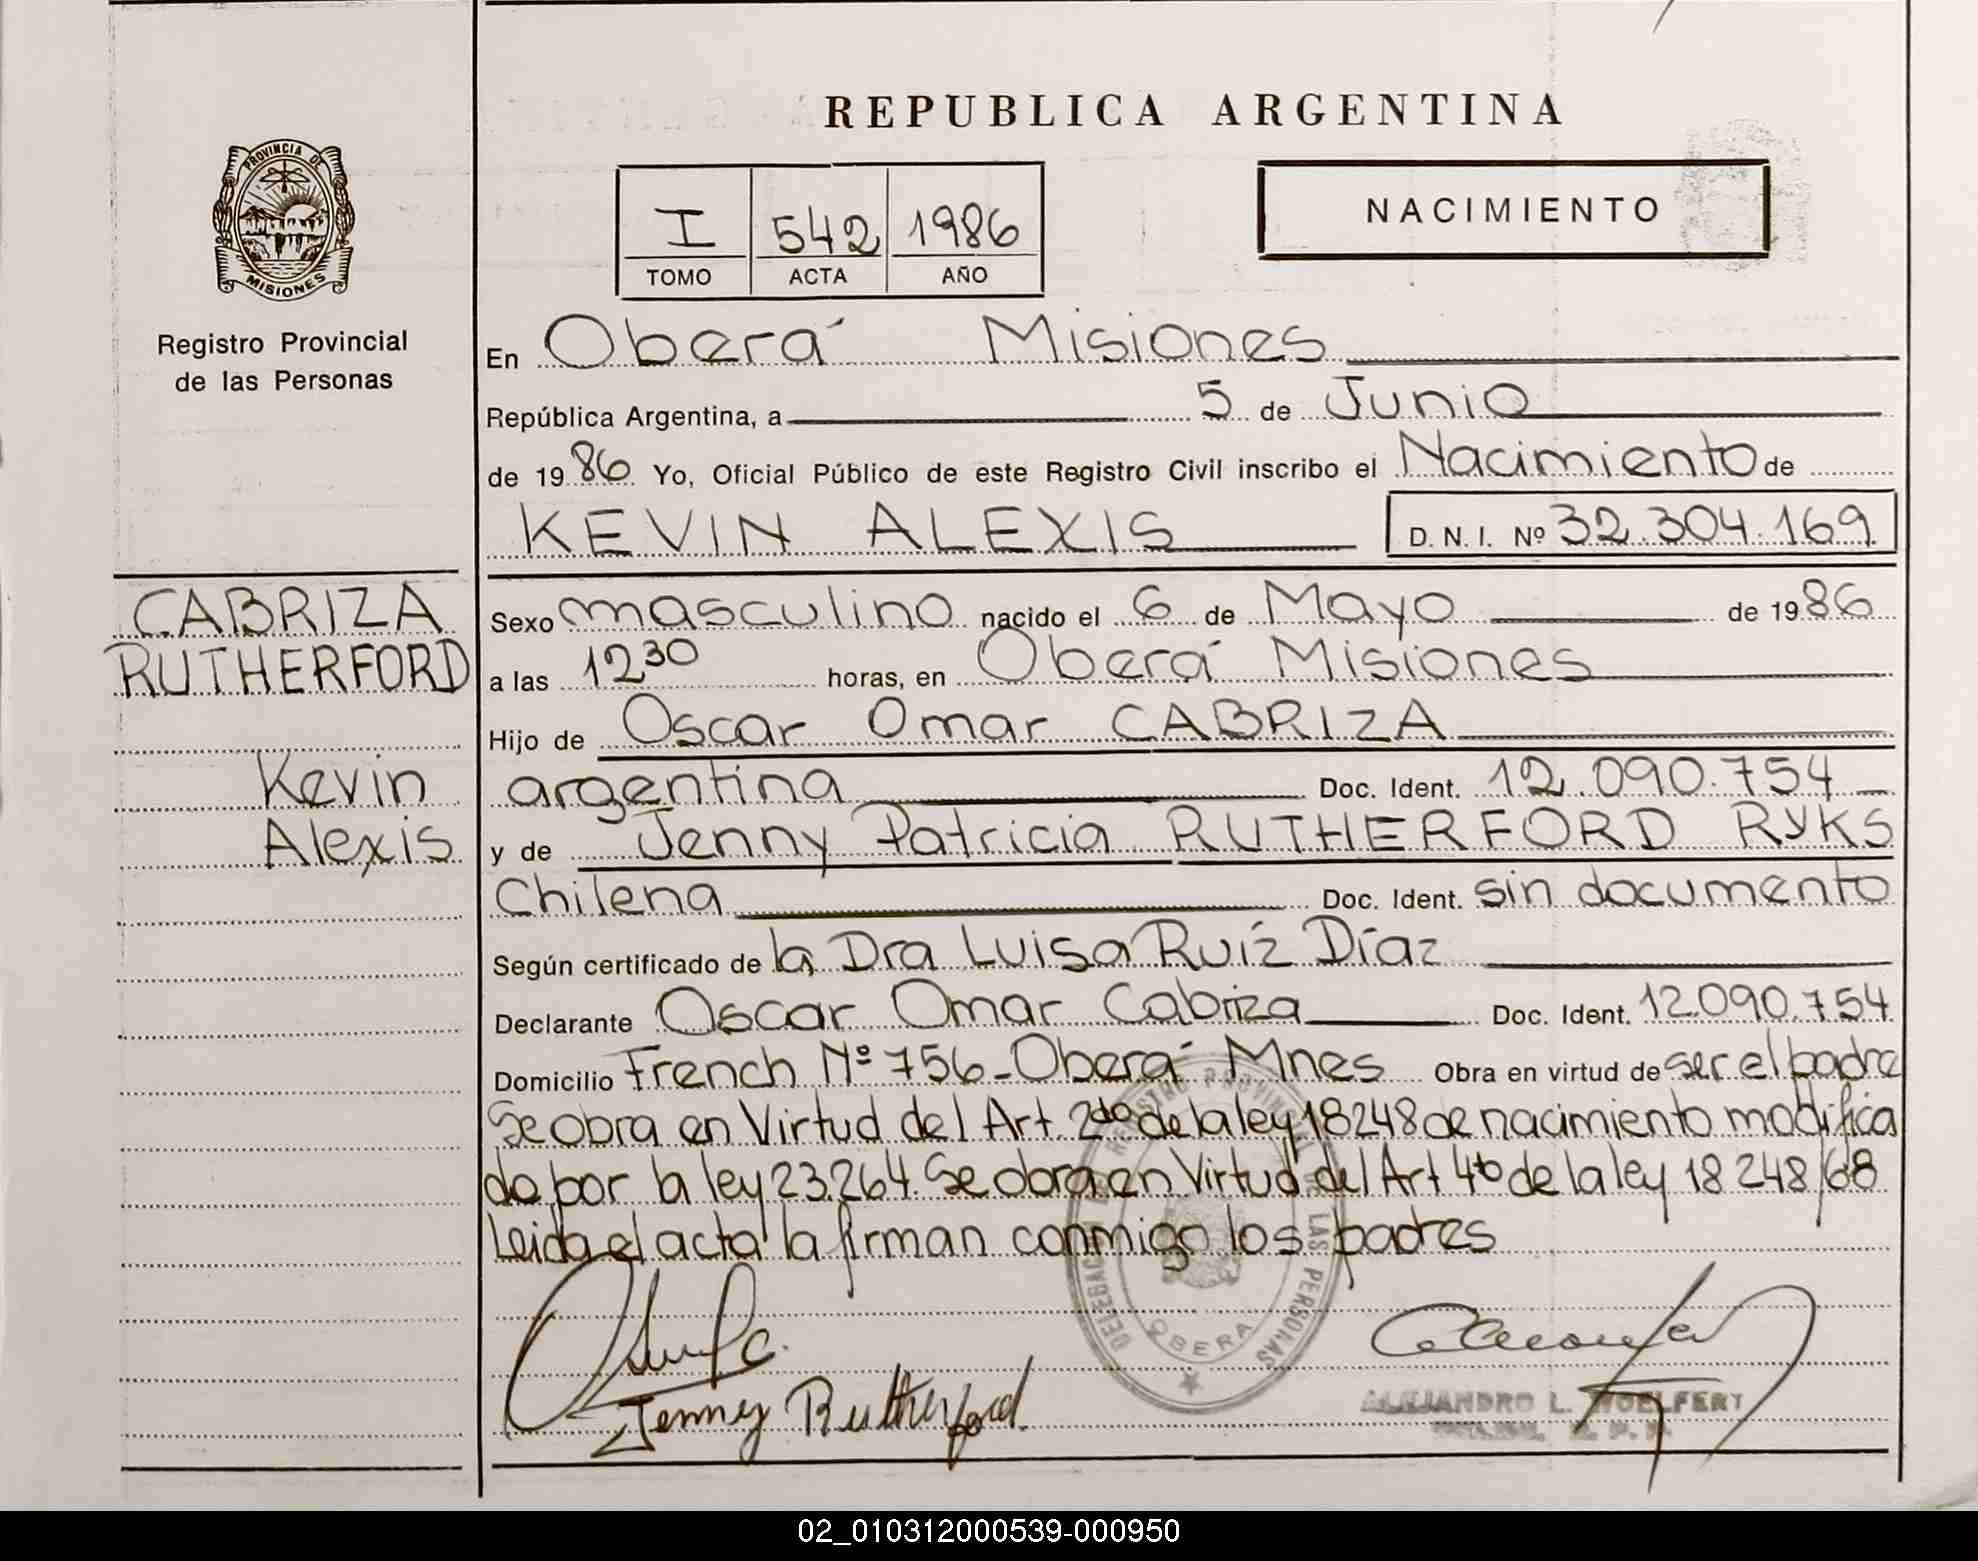 REPUBLICA ARGENTINA
PROVINCIA DE
MISIONES
Registro Provincial
de las Personas
NACIMIENTO
I 542 1986
TOMO ACTA AÑO
En Oberá Misiones
República Argentina, a 5 de Junio
de 1986 Yo, Oficial Público de este Registro Civil inscribo el Nacimiento de
KEVIN ALEXIS D. N. I. Nº 32.304.169
CABRIZA
RUTHERFORD
Kevin
Alexis
Sexo masculino nacido el 6 de Mayo de 1986
a las 12 30 horas, en Oberá Misiones
Hijo de Oscar Omar CABRIZA
argentina Doc. Ident. 12.090.754
y de Jenny Patricia RUTHERFORD RYKS
Chilena Doc. Ident. sin documento
Según certificado de la Dra Luisa Ruíz Díaz
Declarante Oscar Omar Cabriza Doc. Ident. 12.090.754
Domicilio French Nº 756-Oberá Mnes Obra en virtud de ser el padre
Se obra en Virtud del Art. 2do de la ley 18248 de nacimiento modifica
do por la ley 23.264. Se obra en Virtud del Art 4to de la ley 18 248/68
Leida el acta la firman conmigo los padres
DELEGACION REGISTRO PROVINCIAL LAS PERSONAS
OBERA
Jenny Rutherford
ALEJANDRO L. WOELFERT
02_010312000539-000950